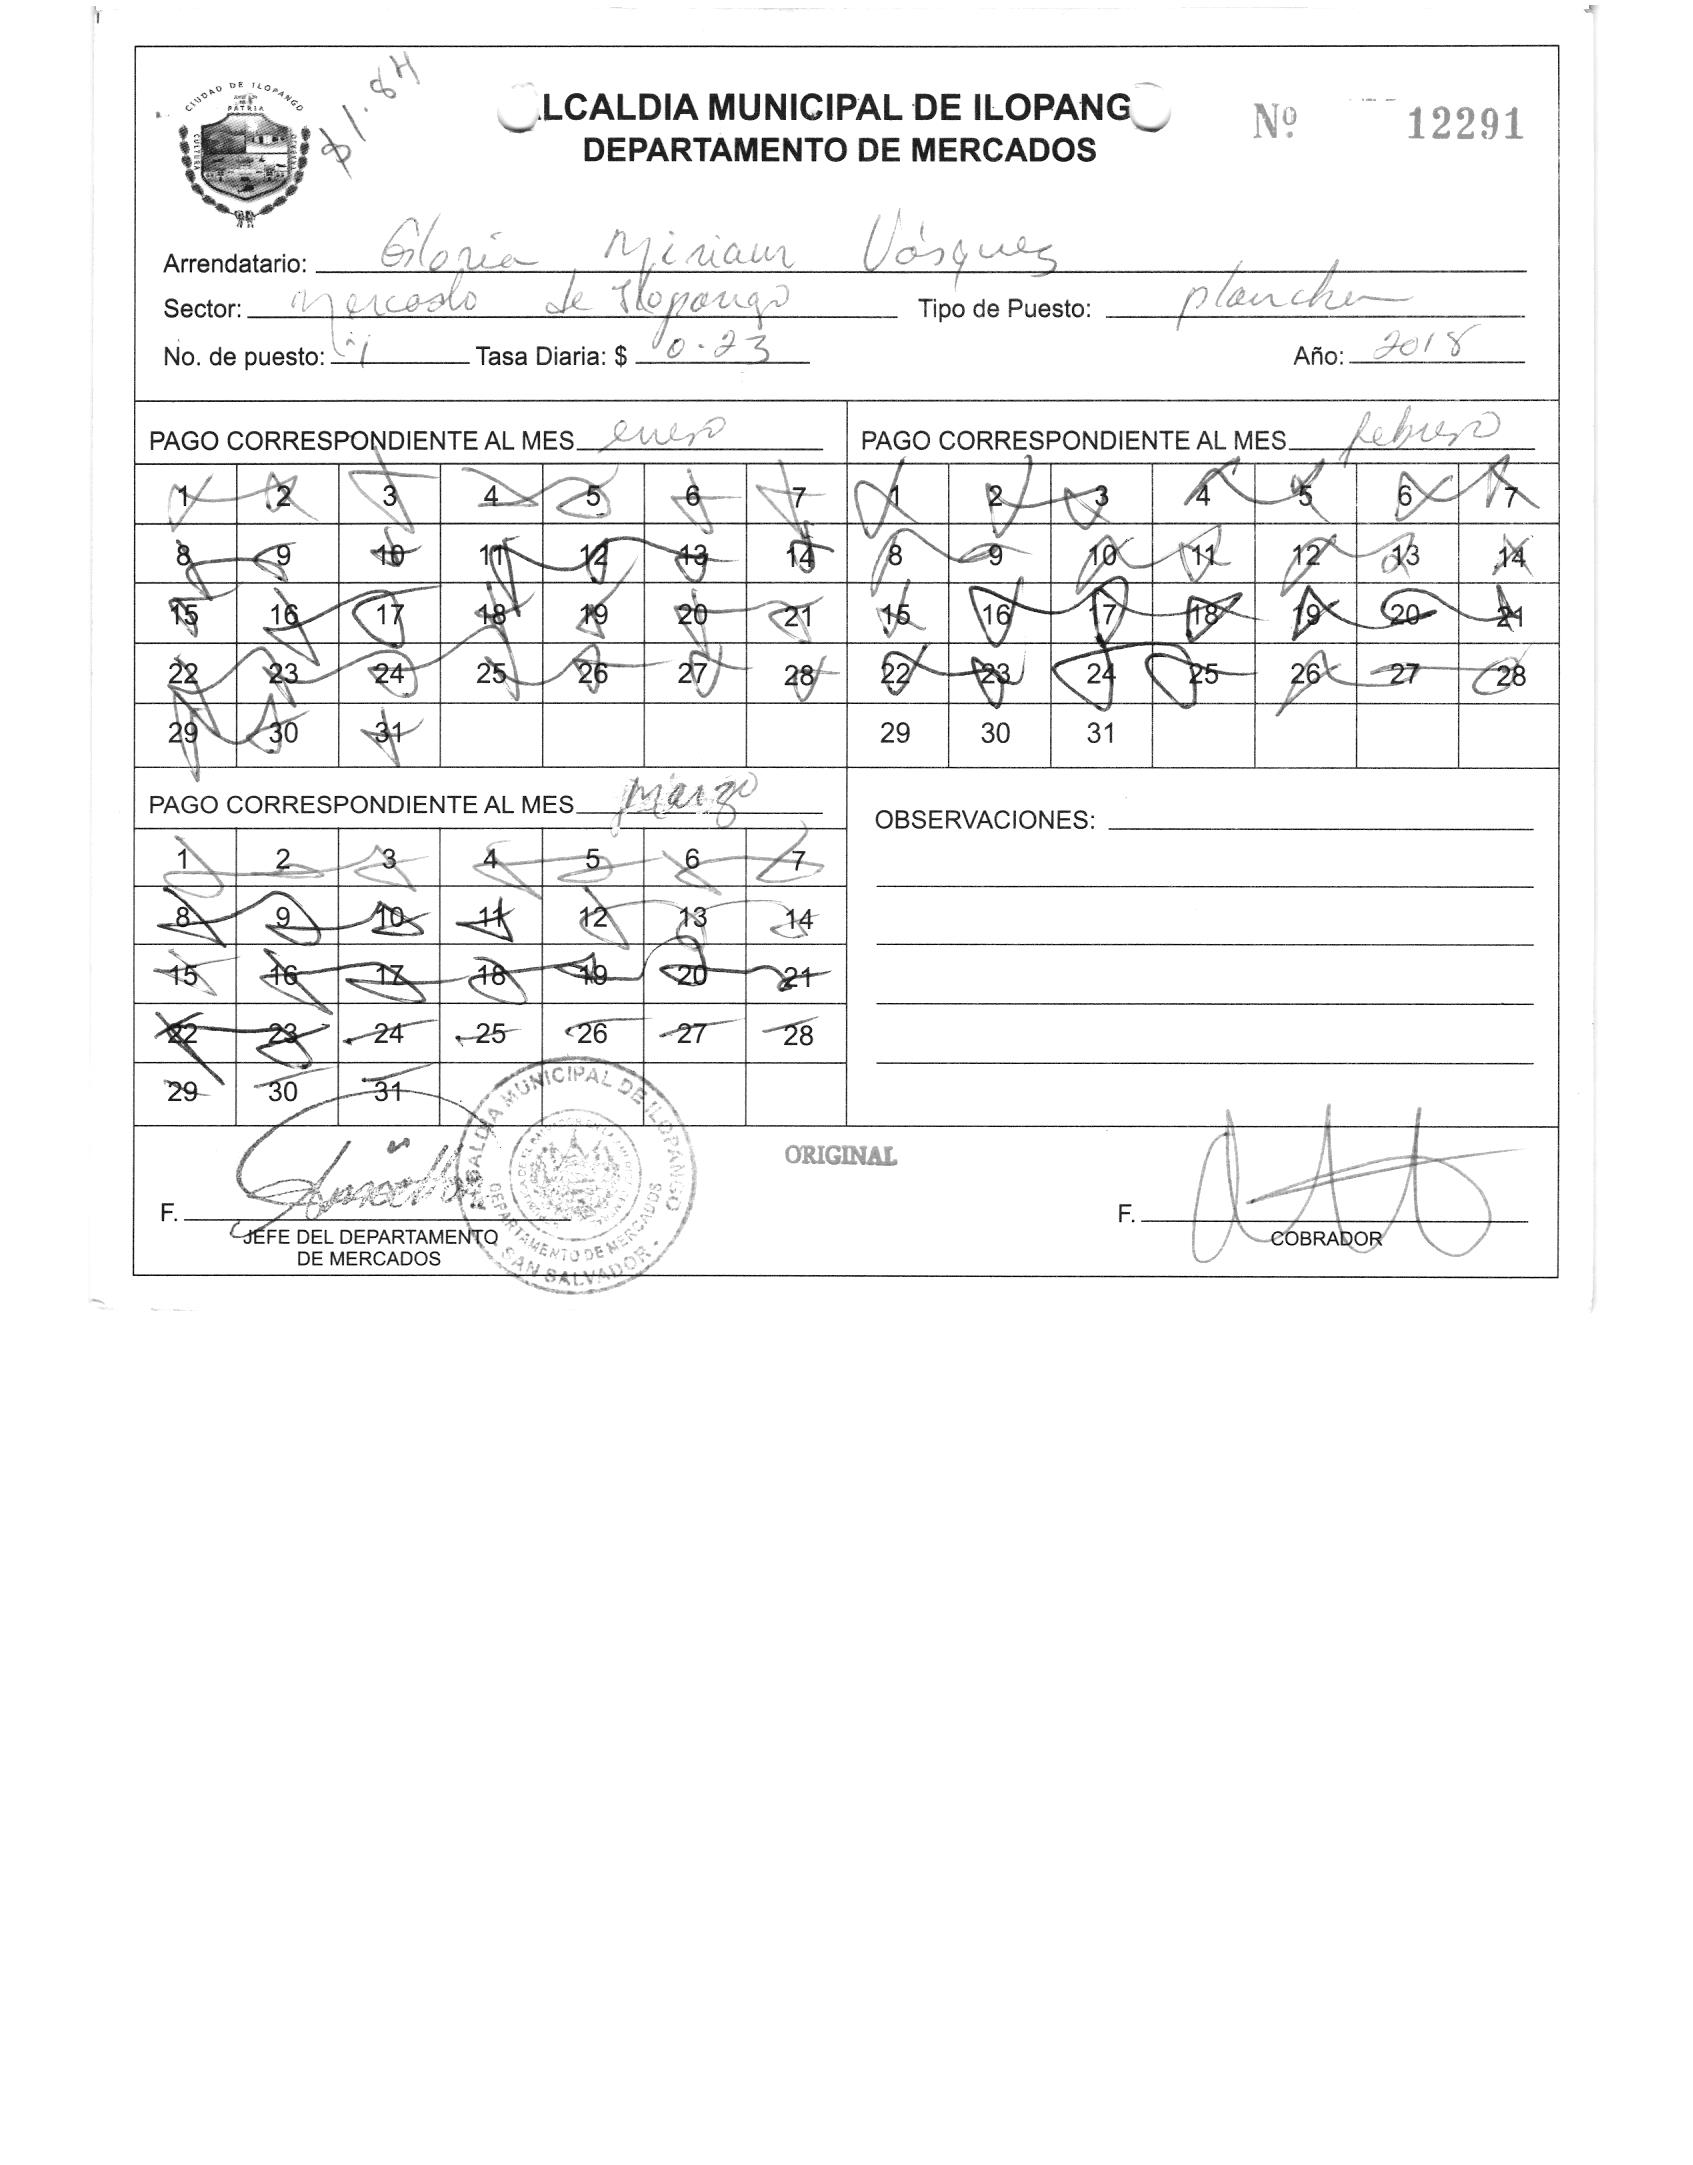 CIUDAD DE ILOPANGO
PATRIA
CULTURA
$1.84
LCALDIA MUNICIPAL DE ILOPANG
DEPARTAMENTO DE MERCADOS
Nº 12291
Arrendatario: Gloria Miriam Vásquez
Sector: Mercado de Ilopango Tipo de Puesto: plancha
No. de puesto: Tasa Diaria: $ 0.23 Año: 2018
PAGO CORRESPONDIENTE AL MES enero
1 2 3 4 5 6 7
8 9 10 11 12 13 14
15 16 17 18 19 20 21
22 23 24 25 26 27 28
29 30 31
PAGO CORRESPONDIENTE AL MES febrero
1 2 3 4 5 6 7
8 9 10 11 12 13 14
15 16 17 18 19 20 21
22 23 24 25 26 27 28
29 30 31
PAGO CORRESPONDIENTE AL MES marzo
1 2 3 4 5 6 7
8 9 10 11 12 13 14
15 16 17 18 19 20 21
22 23 24 25 26 27 28
29 30 31
OBSERVACIONES:
ORIGINAL
F.
JEFE DEL DEPARTAMENTO
DE MERCADOS
ALCALDIA MUNICIPAL DE ILOPANGO
DEPARTAMENTO DE MERCADOS
SAN SALVADOR
F.
COBRADOR